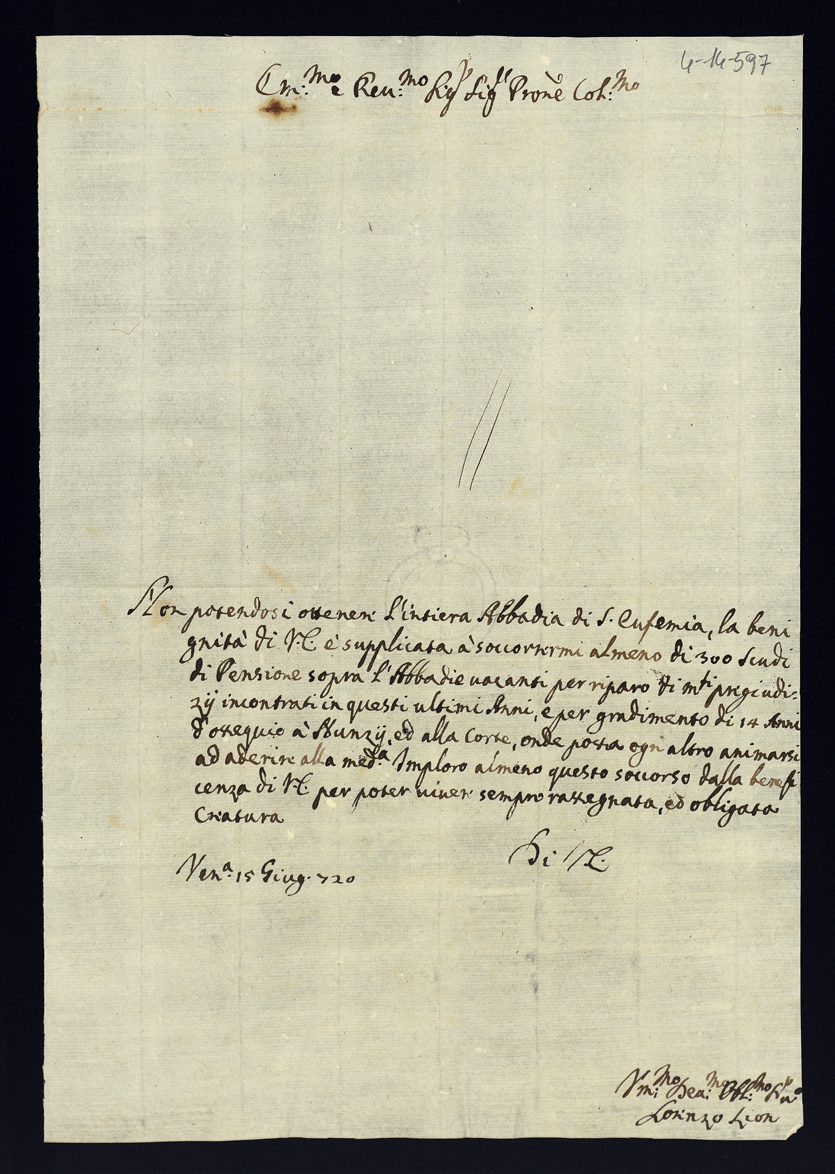 4-14-597
Em:mo e Reu:mo Sigr Sigr Prone Col:mo
Non potendosi ottenere l'intiera Abbadia di S. Eufemia, la beni
gnità di V.E. è supplicata à soccorrermi almeno di 300 Scudi
di Pensione sopra l'Abbadie vacanti per riparo di mti pregiudi:
zÿ incontrati in questi ultimi Anni, e per gradimento di 14 Anni
d'ossequio à Nunzÿ, ed alla Corte, onde possa ogn'altro animarsi
ad aderire alla meda. Imploro almeno questo soccorso dalla benefi
cenza di V.E. per poter viver sempre rassegnata, ed obligata
Creatura
Di V.E.
Vena. 15 Giug. 720
Vm:mo Deu:mo Obl:mo
Lorenzo Leon